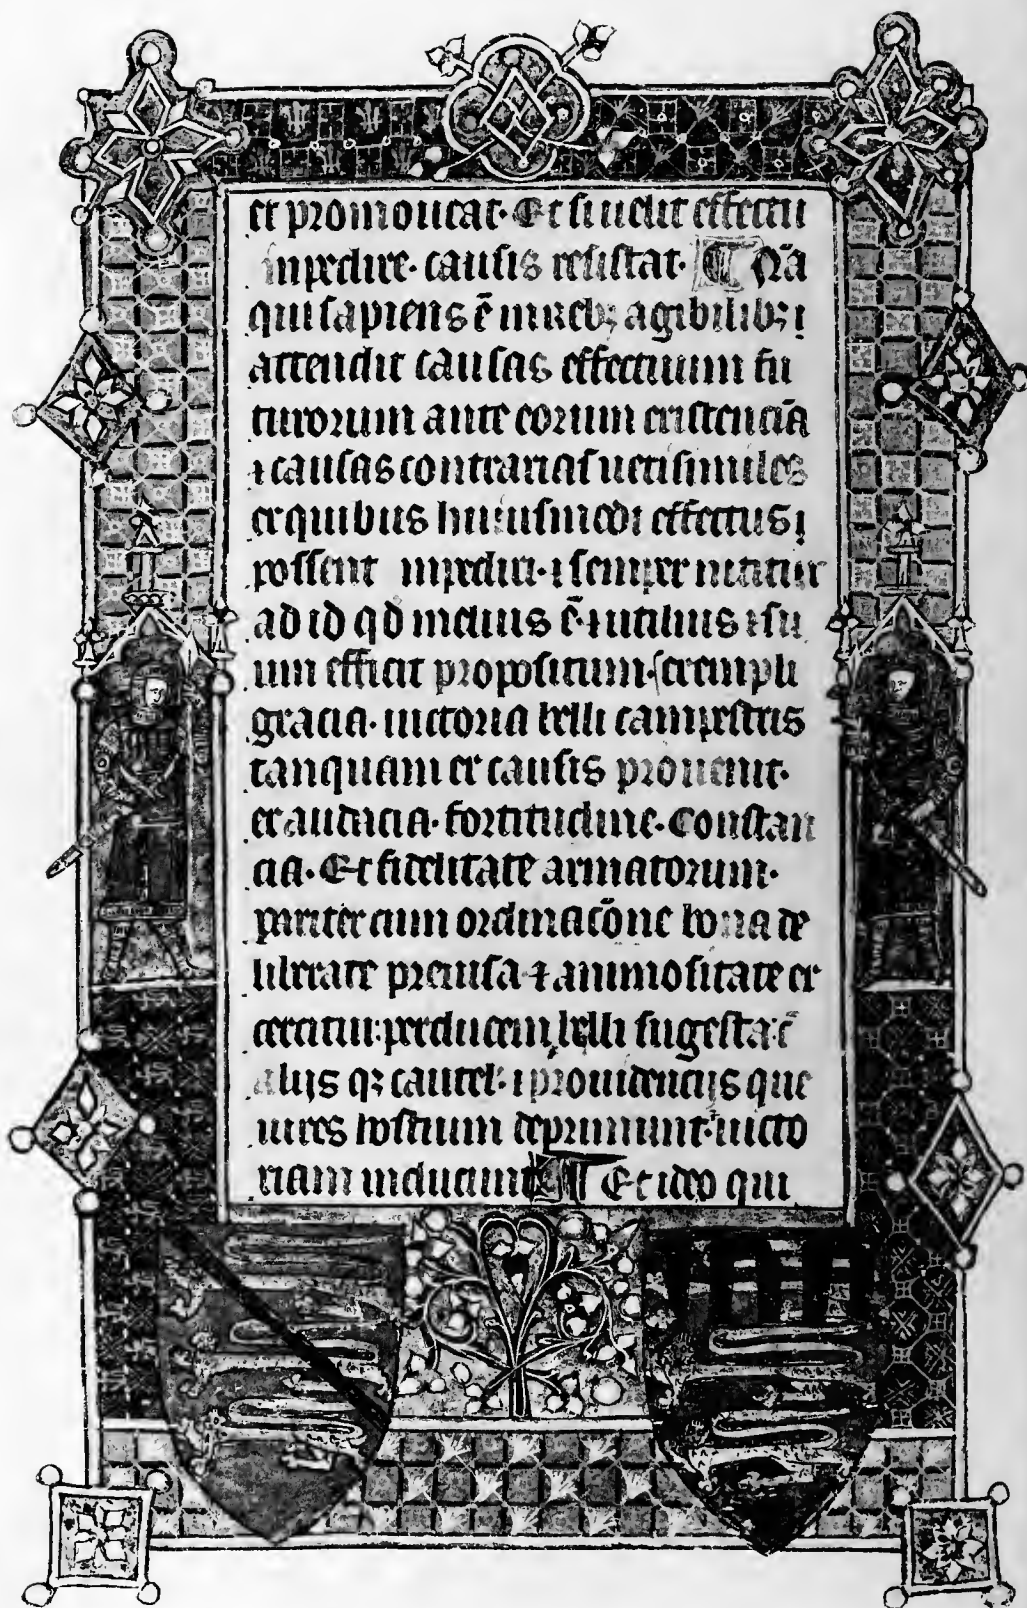 et promoueat· Et si uelit effectū
inpedire· causis resistat· ¶ Nā
qui sapiens ē in rebꝫ agibilibꝫ ⁊
attendit causas effectiuum fu
turorum ante eorum existenciā
⁊ causas contrarias uerisimiles
ex quibus huiusmodi effectus ⁊
possent inpediri· ⁊ semper nititur
ad id qd melius ē· ⁊ utilius ⁊ su
um efficit propositum· exempli
gracia· uictoria belli campestris
tanquam ex causis prouenit·
ex audacia· fortitudine· Constan
cia· Et fidelitate armatorum·
pariter cum ordinacōne bona de
liberate preuisa· ⁊ animositate ex
certitui· per ducem belli sugesta· c̄
alijs qꝫ cautel· ⁊ prouidencijs que
uires hostium deprimunt· uicto
riam inducunt ¶ Et ideo qui